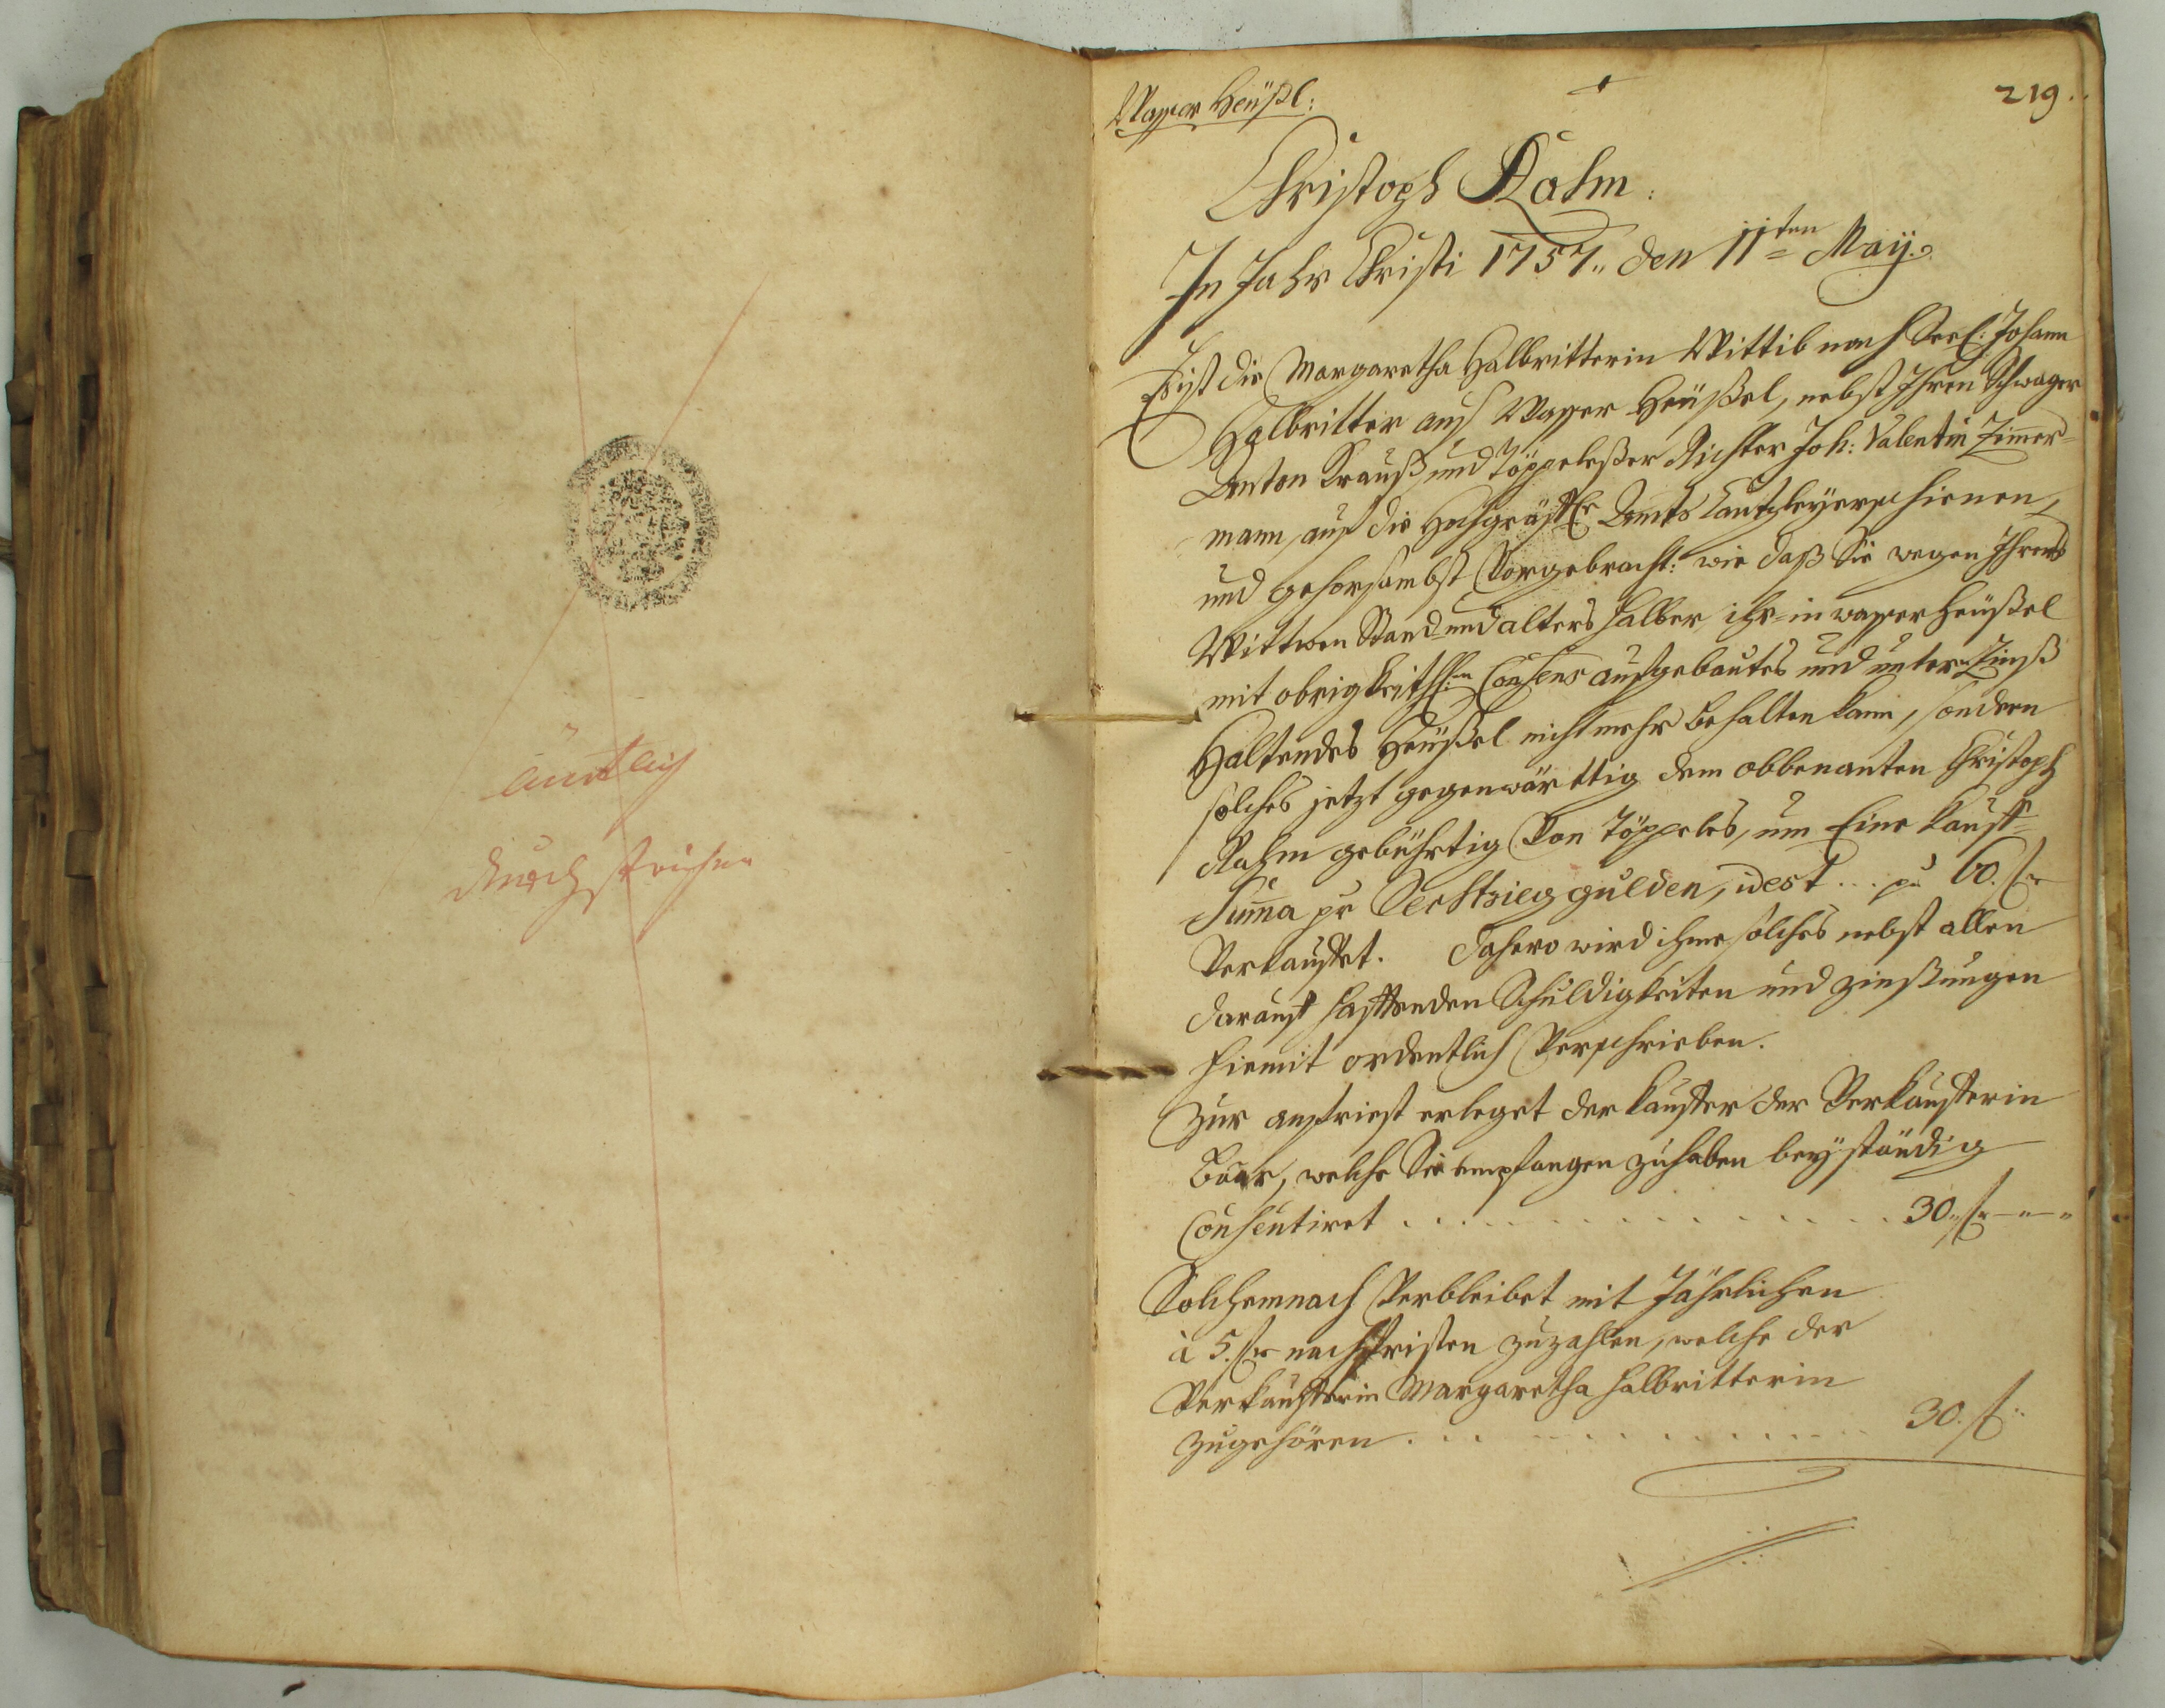 ämtlich
durchstrichen
Wasser Heüßl:
219.
Christoph Rahm:
In Jahr Christi 1757. den 11ten Maÿ.
Ist die Margaretha Halbritterin Wittib nach Seel: Johann
Halbritter auß Wasser Heüßel, nebst Ihren Schwager
Anton Krauß und Töppeleßer Richter Joh: Valentin Zimer=
mann, auf die Hochgräffl. Ambts Cantzleÿ erschienen,
und gehorsambst Vorgebracht: wie daß Sie wegen Ihrens
Wittwen Stand und alters halber, ihr in wasser Heüßel
mit obrigkeithl:en Consens aufgebautes und unter Zinß
Haltendes Heüßel nicht mehr behalten kann, sondern
solches jetzt gegenwärttig dem obbenanten Christoph
Rahm gebührtig Von Töppeles, um Eine Kauff=
Suma pr Sechtzieg gulden, id est ... pr 60. fl
Verkauffet. Dahero wird ihme solches nebst allen
darauf hafftenden Schuldigkeiten und zinßungen
hiemit ordentlich Verschrieben.
Zur anfriest erleget der Kauffer der Verkaufferin
Baar, welche Sie empfangen zuhaben beyständig
Consentiret . . . . . . . . 30. fl
Solchemnach Verbleibet mit Jährlichen
à 5. fl nachfristen zuzahlen, welche der
Verkaufferin Margaretha Halbritterin
zugehören . . . . . . . . 30. fl